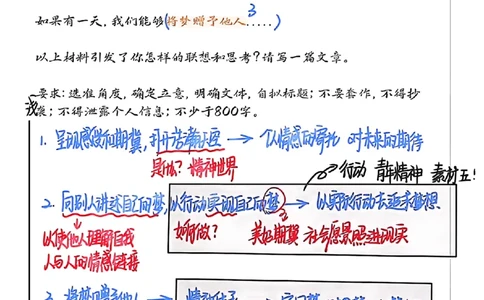 3
如果有一天，我们能够(将梦赠予他人.....)
以上材料引发了你怎样的联想和思考？请写一篇文章。
要求：选准角度，确定立意，明确文体，自拟标题；不要套作，不得抄
袭；不得泄露个人信息；不少于800字。
1. 呈现感受和期冀, → 以情感的寄托 对未来的期待
是什么？精神世界
行动 青年精神 素材五！
2. 同别人讲述自己的梦, 以行动实现自己的梦 → 以实际行动去追求梦想
以使他人理解自我 如何做？ 美好期冀 社会愿景照进现实
人与人的情感链接
3. →